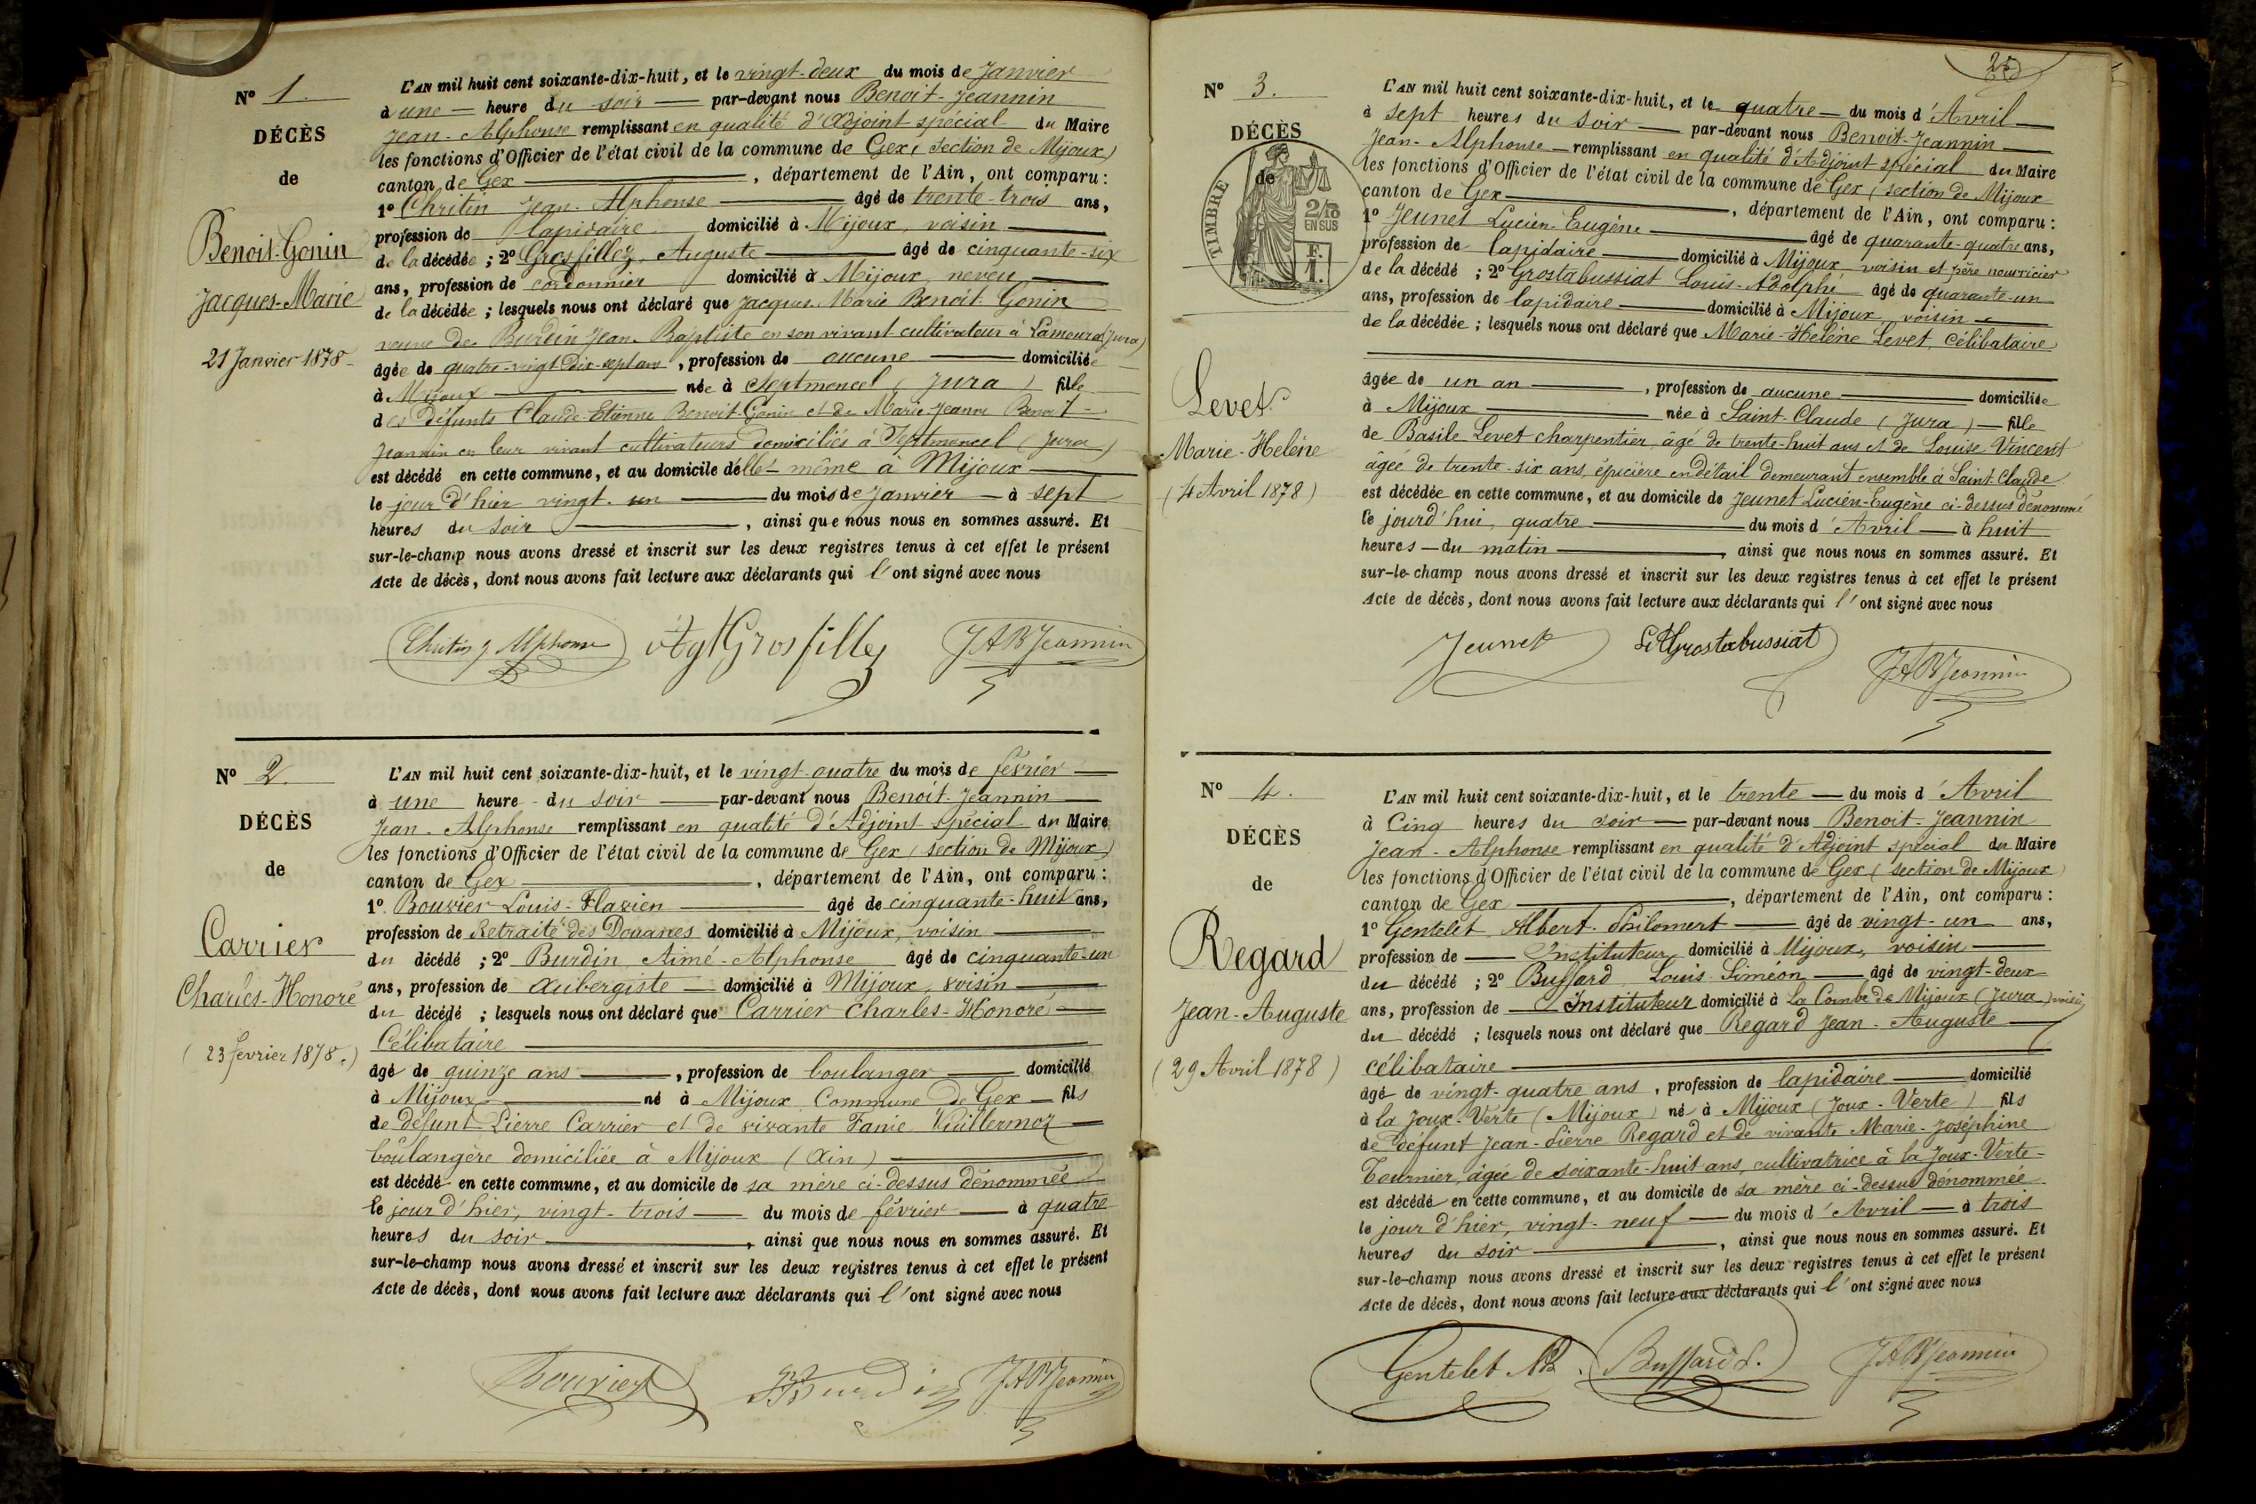 N° 1.
DÉCÈS
de
Benoit-Gonin
Jacques-Marie
21 Janvier 1878
L'AN mil huit cent soixante-dix-huit, et le vingt-deux du mois de Janvier
à une heure du soir par-devant nous Benoit-Jeannin
Jean-Alphonse remplissant en qualité d'Adjoint spécial du Maire
les fonctions d'Officier de l'état civil de la commune de Gex, (section de Mijoux)
canton de Gex, département de l'Ain, ont comparu :
1° Chritin Jean-Alphonse âgé de trente-trois ans,
profession de lapidaire domicilié à Mijoux, voisin
de la décédée ; 2° Grosfilley Auguste âgé de cinquante-six
ans, profession de cordonnier domicilié à Mijoux, neveu
de la décédée ; lesquels nous ont déclaré que Jacques Marie Benoit Gonin
veuve de Burdin Jean Baptiste en son vivant cultivateur à Lamoura (Jura)
âgée de quatre-vingt dix-sept ans, profession de aucune domiciliée
à Mijoux née à Septmoncel (Jura) fille
des défunts Claude Etienne Benoit Gonin et de Marie Jeanne Benoit-
Jeannin en leur vivant cultivateurs domiciliés à Septmoncel (Jura)
est décédé en cette commune, et au domicile d'elle-même à Mijoux
le jour d'hier vingt-un du mois de Janvier à sept
heures du soir, ainsi que nous nous en sommes assuré. Et
sur-le-champ nous avons dressé et inscrit sur les deux registres tenus à cet effet le présent
Acte de décès, dont nous avons fait lecture aux déclarants qui l'ont signé avec nous
Chritin J Alphonse Agt Grosfilley JABJeannin
N° 2.
DÉCÈS
de
Carrier
Charles-Honoré
(23 fevrier 1878.)
L'AN mil huit cent soixante-dix-huit, et le vingt-quatre du mois de février
à une heure du soir par-devant nous Benoit-Jeannin
Jean-Alphonse remplissant en qualité d'Adjoint spécial du Maire
les fonctions d'Officier de l'état civil de la commune de Gex (section de Mijoux)
canton de Gex, département de l'Ain, ont comparu :
1° Bouvier Louis-Flavien âgé de cinquante-huit ans,
profession de Retraité des Douanes domicilié à Mijoux, voisin
du décédé ; 2° Burdin Aimé-Alphonse âgé de cinquante-un
ans, profession de Aubergiste domicilié à Mijoux, voisin
du décédé ; lesquels nous ont déclaré que Carrier Charles-Honoré
Célibataire
âgé de quinze ans, profession de boulanger domicilié
à Mijoux né à Mijoux Commune de Gex fils
de défunt Pierre Carrier et de vivante Fanie Vuillermoz
boulangère domiciliée à Mijoux (Ain)
est décédé en cette commune, et au domicile de sa mère ci-dessus dénommée
le jour d'hier, vingt-trois du mois de février à quatre
heures du soir, ainsi que nous nous en sommes assuré. Et
sur-le-champ nous avons dressé et inscrit sur les deux registres tenus à cet effet le présent
Acte de décès, dont nous avons fait lecture aux déclarants qui l'ont signé avec nous
Bouvier Burdin JABJeannin
25
N° 3.
DÉCÈS
de
TIMBRE
2/10
EN SUS
Levet
Marie-Heléne
(4 Avril 1878)
L'AN mil huit cent soixante-dix-huit, et le quatre du mois d'Avril
à sept heures du soir par-devant nous Benoit-Jeannin
Jean-Alphonse remplissant en qualité d'Adjoint spécial du Maire
les fonctions d'Officier de l'état civil de la commune de Gex (section de Mijoux
canton de Gex, département de l'Ain, ont comparu :
1° Jeunet Lucien-Eugène âgé de quarante-quatre ans,
profession de lapidaire domicilié à Mijoux voisin et père nourricier
de la décédé ; 2° Grostabussiat Louis-Adolphe âgé de quarante-un
ans, profession de lapidaire domicilié à Mijoux, voisin
de la décédée ; lesquels nous ont déclaré que Marie-Helène Levet, célibataire
âgée de un an, profession de aucune domiciliée
à Mijoux née à Saint-Claude (Jura) fille
de Basile Levet charpentier, âgé de trente-huit ans et de Louise Vincent
âgée de trente-six ans, épicière en détail demeurant ensemble à Saint-Claude
est décédée en cette commune, et au domicile de Jeunet Lucien-Eugène ci-dessus dénommé
le jourd'hui, quatre du mois d'Avril à huit
heures du matin, ainsi que nous nous en sommes assuré. Et
sur-le-champ nous avons dressé et inscrit sur les deux registres tenus à cet effet le présent
Acte de décès, dont nous avons fait lecture aux déclarants qui l'ont signé avec nous
Jeunet LAGrostabussiat JABJeannin
N° 4.
DÉCÈS
de
Regard
Jean-Auguste
(29 Avril 1878)
L'AN mil huit cent soixante-dix-huit, et le trente du mois d'Avril
à Cinq heures du soir par-devant nous Benoit-Jeannin
Jean-Alphonse remplissant en qualité d'Adjoint spécial du Maire
les fonctions d'Officier de l'état civil de la commune de Gex (section de Mijoux)
canton de Gex, département de l'Ain, ont comparu :
1° Gentelet Albert-Philomert âgé de vingt-un ans,
profession de Instituteur domicilié à Mijoux, voisin
du décédé ; 2° Buffard Louis Siméon âgé de vingt-deux
ans, profession de Instituteur domicilié à La Combe de Mijoux (Jura) voisin
du décédé ; lesquels nous ont déclaré que Regard Jean-Auguste
célibataire
âgé de vingt-quatre ans, profession de lapidaire domicilié
à la Joux-Verte (Mijoux) né à Mijoux (Joux-Verte) fils
de défunt Jean-Pierre Regard et de vivante Marie-Joséphine
Tournier, âgée de soixante-huit ans, cultivatrice à la Joux-Verte
est décédé en cette commune, et au domicile de sa mère ci-dessus dénommée
le jour d'hier, vingt-neuf du mois d'Avril à trois
heures du soir, ainsi que nous nous en sommes assuré. Et
sur-le-champ nous avons dressé et inscrit sur les deux registres tenus à cet effet le présent
Acte de décès, dont nous avons fait lecture aux déclarants qui l'ont signé avec nous
Gentelet Alb. Buffard S. JABJeannin